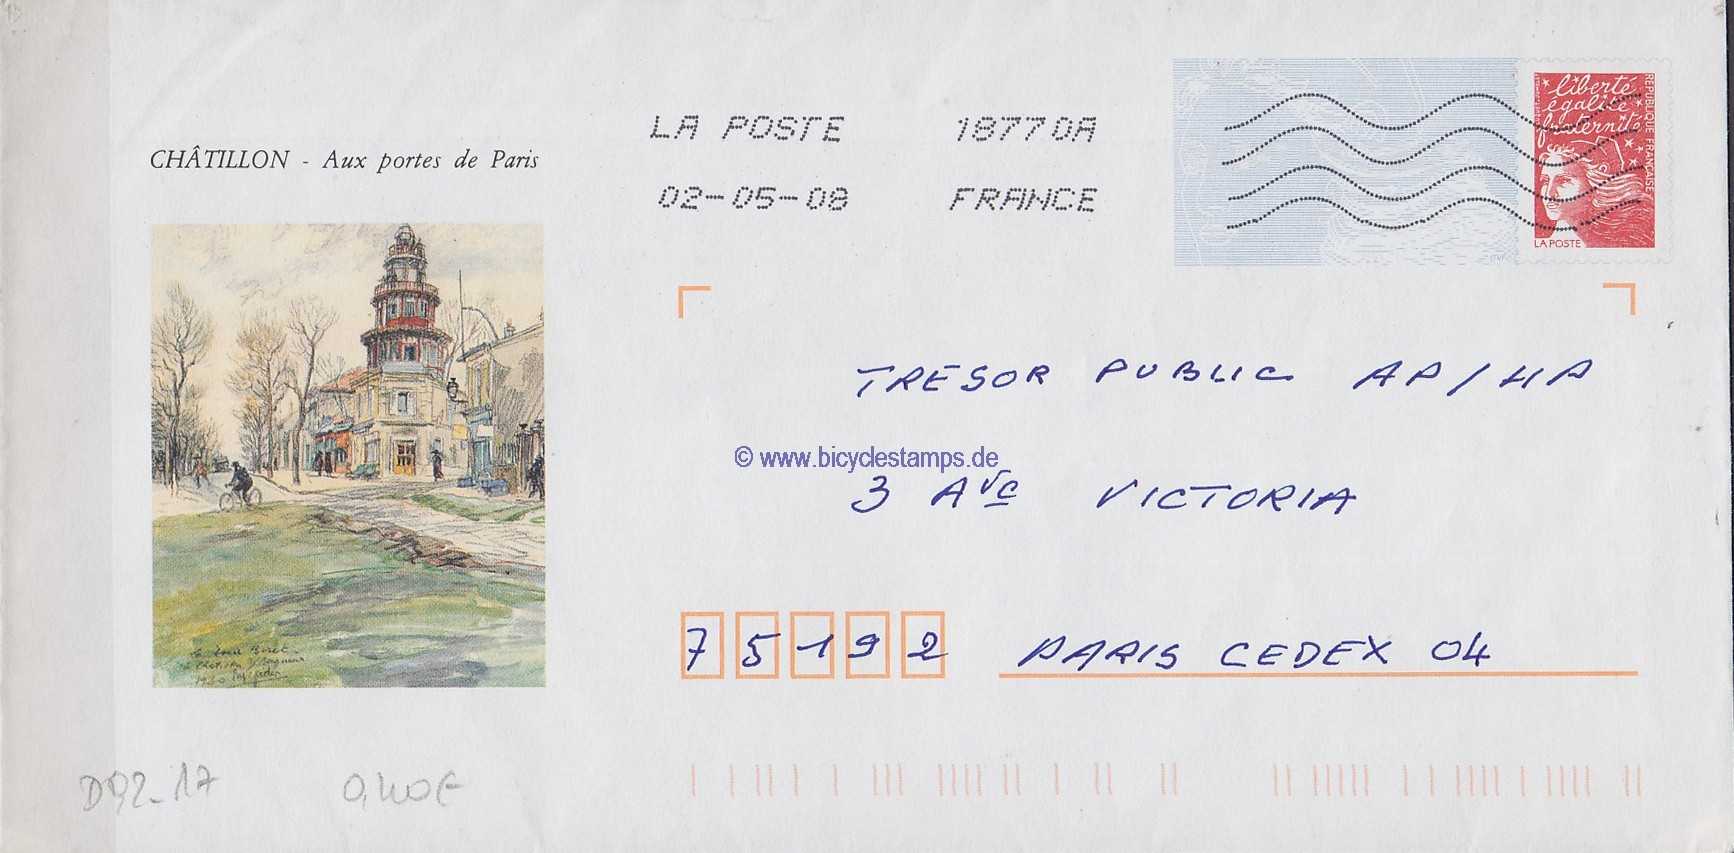 LA POSTE 18770A
02-05-08 FRANCE
liberté
égalité
fraternité
RÉPUBLIQUE FRANÇAISE
LA POSTE
CHÂTILLON - Aux portes de Paris
TRESOR PUBLIC AP/HP
© www.bicyclestamps.de
3 AVE VICTORIA
75192 PARIS CEDEX 04
D92-17 0,40€